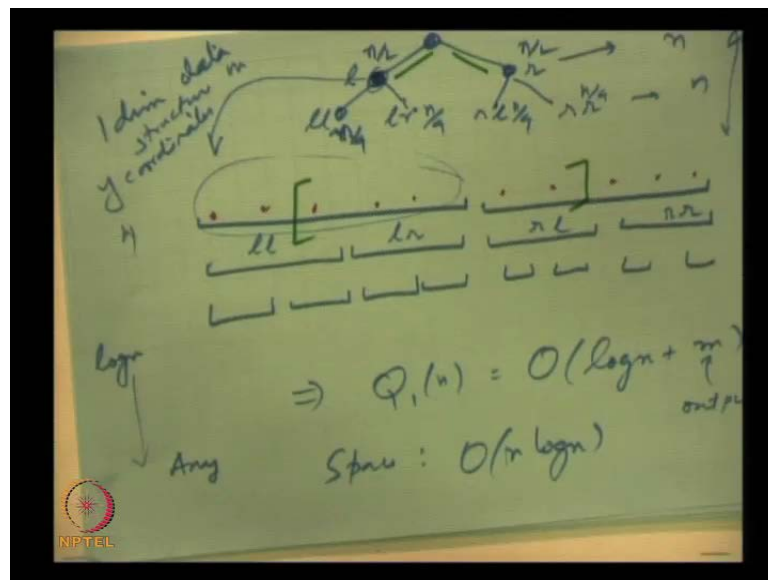 1 dim data
structure in
y coordinates
n/2 n/2 n
l r
ll lr n/4 rl n/4 rr n/4 n
n/4
n
ll lr rl rr
log n
⇒ Q₁(n) = O(log n + m)
Any Space : O(n log n)
NPTEL